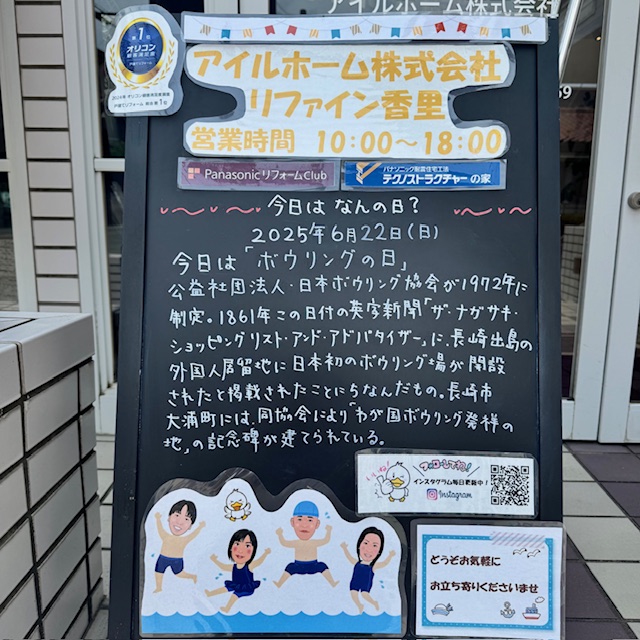 アイルホーム株式会社
第1位
オリコン
顧客満足度
戸建てリフォーム
2024年 オリコン顧客満足度調査
戸建てリフォーム 総合第1位
アイルホーム株式会社
リファイン香里
営業時間 10:00〜18:00
PanasonicリフォームClub
パナソニック耐震住宅工法
テクノストラクチャーの家
今日は なんの日?
2025年6月22日(日)
今日は「ボウリングの日」
公益社団法人・日本ボウリング協会が1972年に
制定。1861年この日付の英字新聞「ザ・ナガサキ・
ショッピングリスト・アンド・アドバタイザー」に、長崎出島の
外国人居留地に日本初のボウリング場が開設
されたと掲載されたことにちなんだもの。長崎市
大浦町には、同協会により「わが国ボウリング発祥の
地」の記念碑が建てられている。
いいね
フォローしてね!
インスタグラム毎日更新中!
Instagram
どうぞお気軽に
お立ち寄りくださいませ